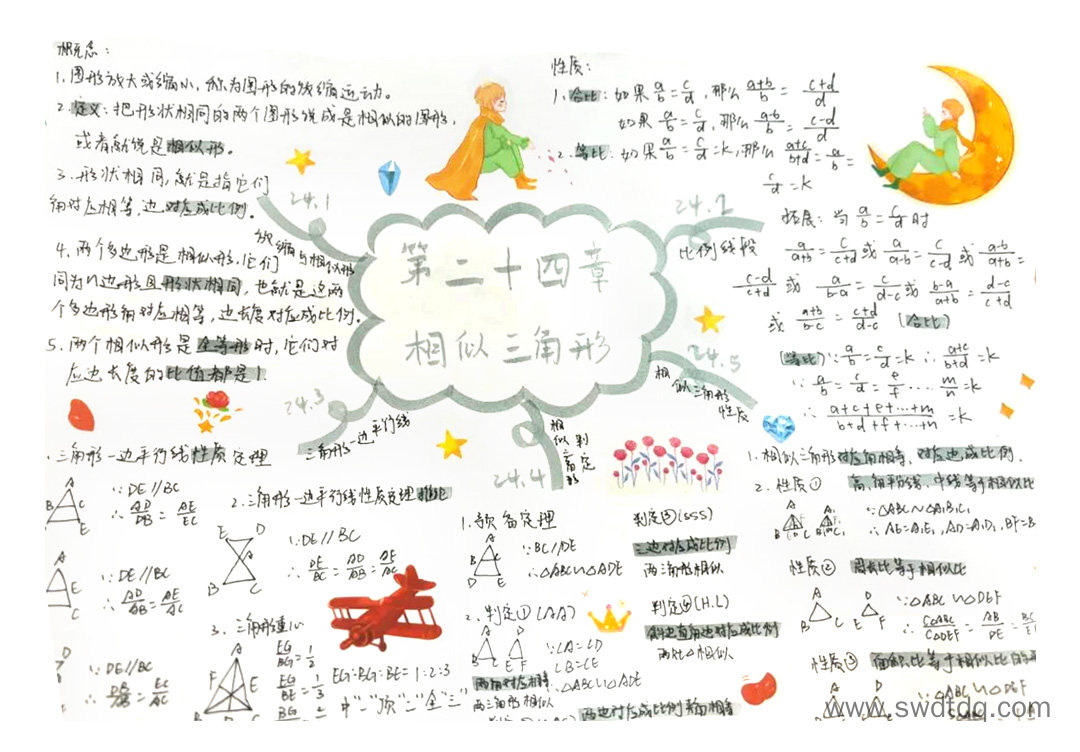 概念：
1.图形放大或缩小，称为图形的放缩运动。
2.定义：把形状相同的两个图形说成是相似的图形，
或者就说是相似形。
3.形状相同，就是指它们
角对应相等，边对应成比例。
4.两个多边形是相似形，它们
同为n边形且形状相同，也就是这两
个多边形角对应相等，边长度对应成比例。
5.两个相似形是全等形时，它们对
应边长度的比值都是1.
24.1
放缩与相似形
第二十四章
相似三角形
24.2
比例线段
性质：
1.合比：如果a/b=c/d，那么(a+b)/b=(c+d)/d
如果a/b=c/d，那么(a-b)/b=(c-d)/d
2.等比：如果a/b=c/d=k，那么(a+c)/(b+d)=a/b=
c/d=k
拓展：当a/b=c/d时
a/(a+b)=c/(c+d)或a/(a-b)=c/(c-d)或(a-b)/(a+b)=
(c-d)/(c+d)或a/(b-a)=c/(d-c)或(b-a)/(a+b)=(d-c)/(c+d)
或(a+b)/(b-c)=(c+d)/(d-c)（合比）
（等比）∵a/b=c/d=k∴(a+c)/(b+d)=k
∵a/b=c/d=e/f....m/n=k
∴(a+c+e+...+m)/(b+d+f+...+n)=k
24.3
三角形一边平行线
24.4
相似三角形判定
24.5
相似三角形性质
.三角形一边平行线性质定理
A
B C
E
∵DE//BC
∴AD/DB=AE/EC
A
E
C
∵DE//BC
∴AD/AB=AE/AC
∵DE//BC
=EC/AC
2.三角形一边平行线性质定理推论
E D
A
B C
∵DE//BC
∴DE/BC=AD/AB=AE/AC
3.三角形重心
A
F E
B
EG/BG=1/2
EG/BE=1/3
BG/BE=2/
EG:BG:BE=1:2:3
1.预备定理
A
B C
D E
∵BC//DE
∴△ABC∽△ADE
2.判定①(AA)
A D
B C E F
∵∠A=∠D
∠B=∠E
∴△ABC∽△ADE
两角对应相等
两三角形相似
判定③(SSS)
三边对应成比例
两三角形相似
判定④(H.L)
斜边直角边对应成比例
两Rt△相似
1.相似三角形对应角相等，对应边成比例.
2.性质①
高、角平分线、中线等于相似比
∵△ABC∽△A₁B₁C₁
∴AE=A₁E₁,AD=A₁D₁,BF=B
性质②
周长比等于相似比
A D
B C E F
∵△ABC∽△DEF
∴C△ABC/C△DEF=AB/DE=BC/
性质③
面积比等于相似比的平
A D
∵△ABC∽△DEF
www.swdtdq.com